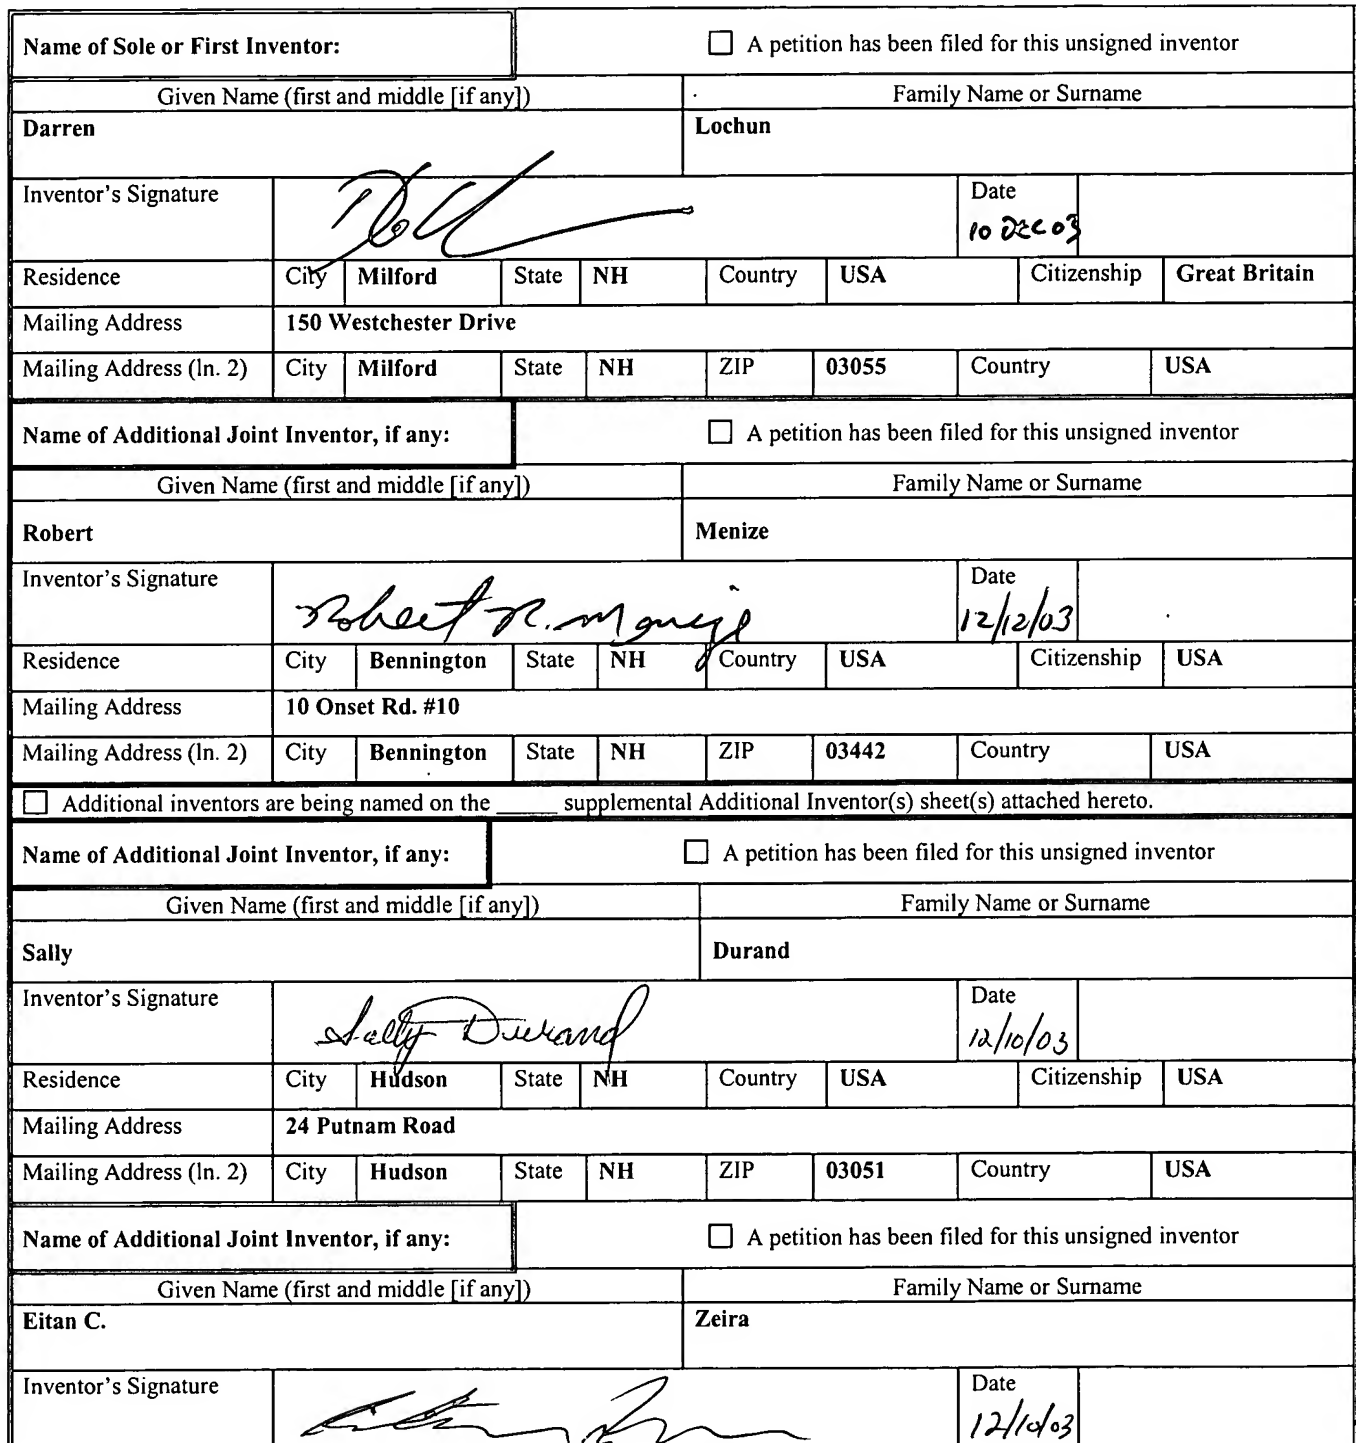 Name of Sole or First Inventor: ☐ A petition has been filed for this unsigned inventor
Given Name (first and middle [if any]) Family Name or Surname
Darren Lochun
Inventor's Signature Date
10 DEC 03
Residence City Milford State NH Country USA Citizenship Great Britain
Mailing Address 150 Westchester Drive
Mailing Address (ln. 2) City Milford State NH ZIP 03055 Country USA
Name of Additional Joint Inventor, if any: ☐ A petition has been filed for this unsigned inventor
Given Name (first and middle [if any]) Family Name or Surname
Robert Menize
Inventor's Signature Date
Robert R. Menize 12/12/03
Residence City Bennington State NH Country USA Citizenship USA
Mailing Address 10 Onset Rd. #10
Mailing Address (ln. 2) City Bennington State NH ZIP 03442 Country USA
☐ Additional inventors are being named on the _____ supplemental Additional Inventor(s) sheet(s) attached hereto.
Name of Additional Joint Inventor, if any: ☐ A petition has been filed for this unsigned inventor
Given Name (first and middle [if any]) Family Name or Surname
Sally Durand
Inventor's Signature Date
Sally Durand 12/10/03
Residence City Hudson State NH Country USA Citizenship USA
Mailing Address 24 Putnam Road
Mailing Address (ln. 2) City Hudson State NH ZIP 03051 Country USA
Name of Additional Joint Inventor, if any: ☐ A petition has been filed for this unsigned inventor
Given Name (first and middle [if any]) Family Name or Surname
Eitan C. Zeira
Inventor's Signature Date
12/10/03